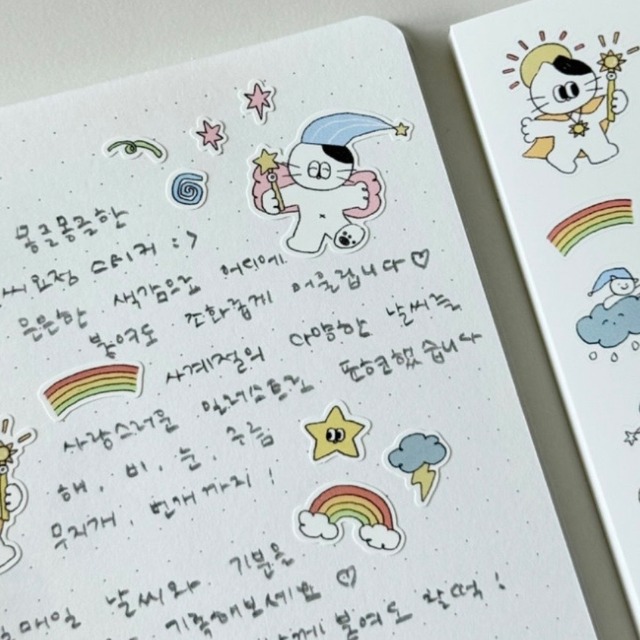 몽글몽글한
날씨요정 스티커 :)
은은한 색감으로 어디에
붙여도 조화롭게 어울립니다♡
사계절의 다양한 날씨를
사랑스러운 일러스트로 표현했습니다
해, 비, 눈, 구름
무지개, 번개까지!
매일 날씨와 기분을
기록해보세요 ♡
붙여도 찰떡!